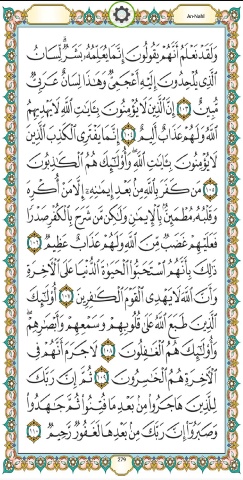 An-Nahl
وَلَقَدْ نَعْلَمُ أَنَّهُمْ يَقُولُونَ إِنَّمَا يُعَلِّمُهُۥ بَشَرٌ ۗ لِّسَانُ
ٱلَّذِى يُلْحِدُونَ إِلَيْهِ أَعْجَمِىٌّ وَهَٰذَا لِسَانٌ عَرَبِىٌّ
مُّبِينٌ ١٠٣ إِنَّ ٱلَّذِينَ لَا يُؤْمِنُونَ بِـَٔايَٰتِ ٱللَّهِ لَا يَهْدِيهِمُ
ٱللَّهُ وَلَهُمْ عَذَابٌ أَلِيمٌ ١٠٤ إِنَّمَا يَفْتَرِى ٱلْكَذِبَ ٱلَّذِينَ
لَا يُؤْمِنُونَ بِـَٔايَٰتِ ٱللَّهِ ۖ وَأُو۟لَٰٓئِكَ هُمُ ٱلْكَٰذِبُونَ
١٠٥ مَن كَفَرَ بِٱللَّهِ مِنۢ بَعْدِ إِيمَٰنِهِۦٓ إِلَّا مَنْ أُكْرِهَ
وَقَلْبُهُۥ مُطْمَئِنٌّۢ بِٱلْإِيمَٰنِ وَلَٰكِن مَّن شَرَحَ بِٱلْكُفْرِ صَدْرًا
فَعَلَيْهِمْ غَضَبٌ مِّنَ ٱللَّهِ وَلَهُمْ عَذَابٌ عَظِيمٌ ١٠٦
ذَٰلِكَ بِأَنَّهُمُ ٱسْتَحَبُّوا۟ ٱلْحَيَوٰةَ ٱلدُّنْيَا عَلَى ٱلْءَاخِرَةِ
وَأَنَّ ٱللَّهَ لَا يَهْدِى ٱلْقَوْمَ ٱلْكَٰفِرِينَ ١٠٧ أُو۟لَٰٓئِكَ
ٱلَّذِينَ طَبَعَ ٱللَّهُ عَلَىٰ قُلُوبِهِمْ وَسَمْعِهِمْ وَأَبْصَٰرِهِمْ ۖ
وَأُو۟لَٰٓئِكَ هُمُ ٱلْغَٰفِلُونَ ١٠٨ لَا جَرَمَ أَنَّهُمْ فِى
ٱلْءَاخِرَةِ هُمُ ٱلْخَٰسِرُونَ ١٠٩ ثُمَّ إِنَّ رَبَّكَ
لِلَّذِينَ هَاجَرُوا۟ مِنۢ بَعْدِ مَا فُتِنُوا۟ ثُمَّ جَٰهَدُوا۟
وَصَبَرُوٓا۟ إِنَّ رَبَّكَ مِنۢ بَعْدِهَا لَغَفُورٌ رَّحِيمٌ ١١٠
279